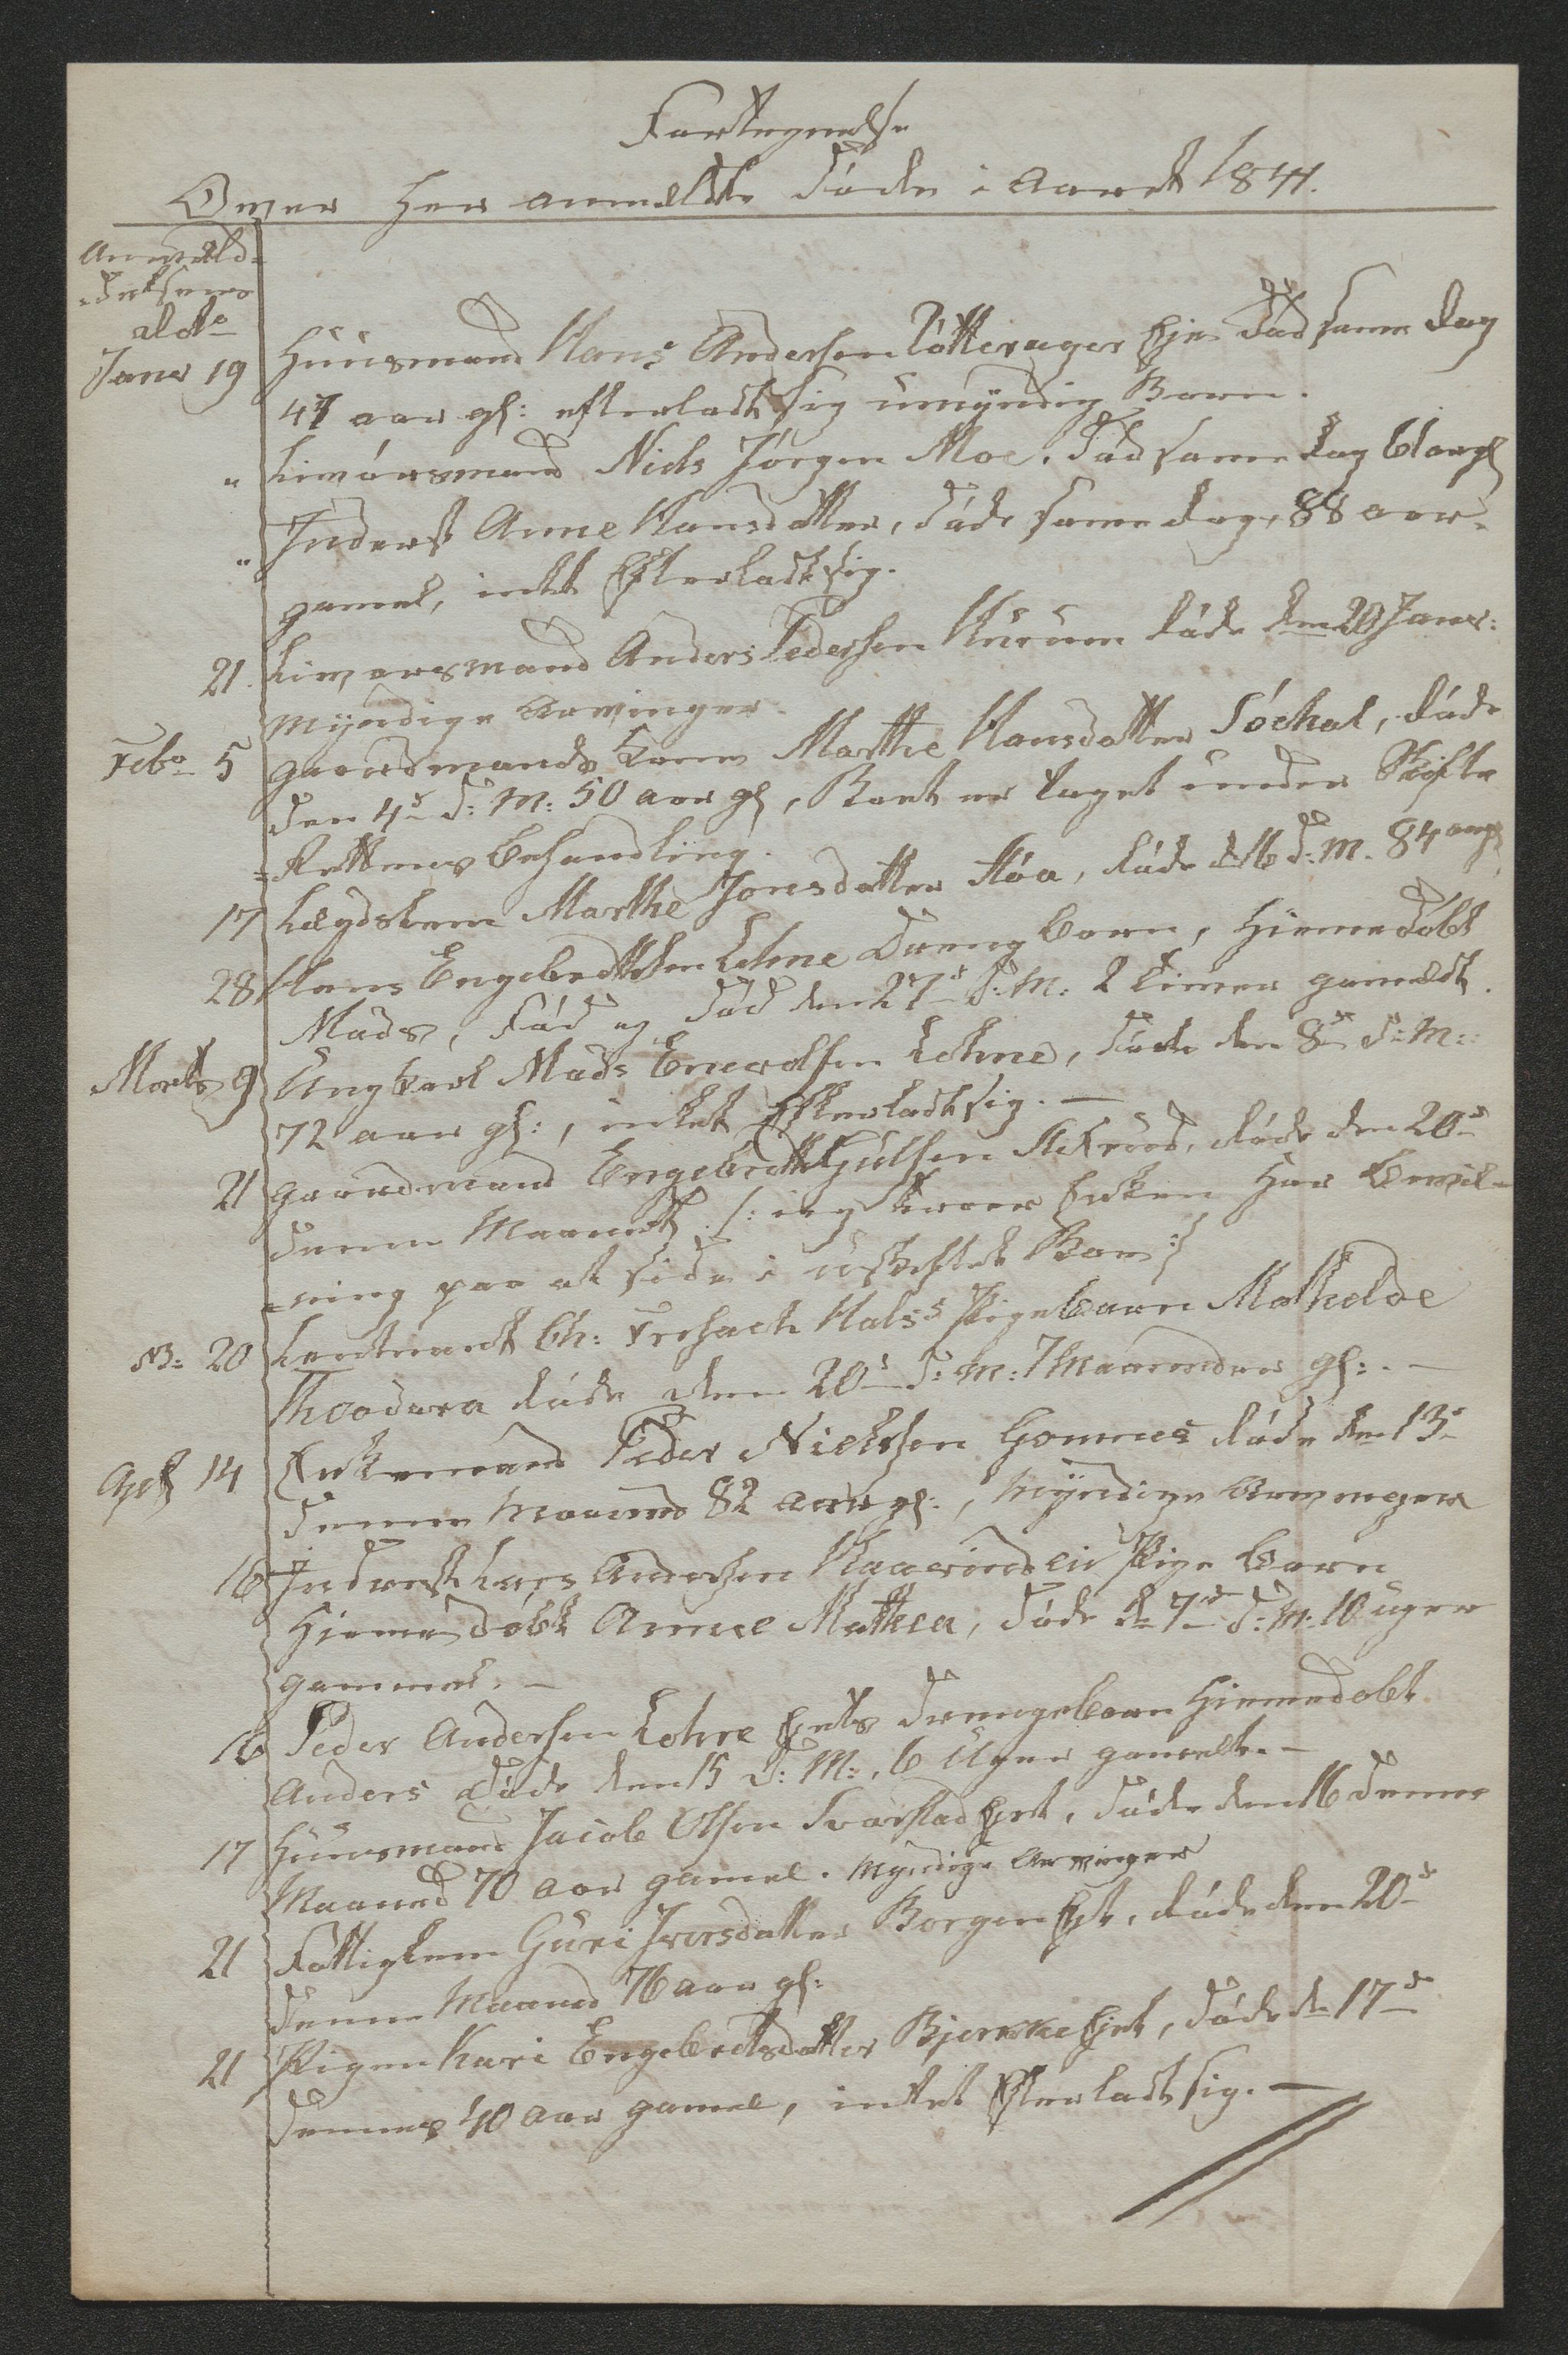 Fortegnelse
Over her anmeldte Døde i Aaret 1841.
Anmeld-
elsens
Dato
Janr 19 Huusmand Hans Andersen Eje død samme Dag
47 aar gl: efterladt sig umyndig Børn.
" Livøresmand Niels Jørgen Moe, død samme dag 61 argl
" Inderst Anne Hansdatter, døde samme dag, 88 aar
gamel, intet Efterladt sig.
21. Livøresmand Anders Pedersen døde den 20 Janr:
Myndige Arvinger.
Febr 5 Gaardmands Kone Marthe Hansdatter Sørhol, døde
den 4de d: M: 50 aar gl, Boet er taget under Skifte
=Rettens Behandling.
17 Lægdslem Marthe Jonsdatter døde d 16 d: M. 84 argl
28 Hans Engebrettsen Lehne Dreng barn, Hiemmedøbt
Mads, Fød og Død den 27de d: M: 2 Timer gameldt.
Marts 9 Ungkarl Mads Enevoldsen Lehne, døde den 8de d: M:
72 aar gl:, intet Efterladt sig. —
21 Gaardmand Engebrett Gulsen døde den 20de
denne Maaned /: jeg troer Enken har Bevil-
=ning paa at side i uskiftet Boe :/
NB: 20 Leutnant Ch: Hals's Pigebarn Mathilde
Theodora døde den 20de d: M: 7 Maaneder gl: . —
Apr 14 Enkemand Peder Nielssen Gommes døde den 13de
denne Maaned 82 aar gl:, Myndige Arvinger
16 Inderst Lars Andersen Pige Barn
Hiemmedøbt Anne Mathea, døde d 7de d: M: 10 uger
gammel. —
16 Peder Andersen Lehne Ejets Drengebarn Hiemmedøbt
Anders døde den 15 d: M:, 6 Uger gamelt. —
17 Huusmand Jacob Olsen Svarstad Ejet, døde den 16 denne
Maaned 70 aar gamel. Myndige Arvinger
21 Fattiglem Guri Iversdatter Borgen Ejet, døde den 20de
denne Maaned 76 aar gl:
21 Pigen Kari Engebretsdatter Bjerke Ejet, døde d 17de
dennes 40 aar gamel, intet Efterladt sig. —